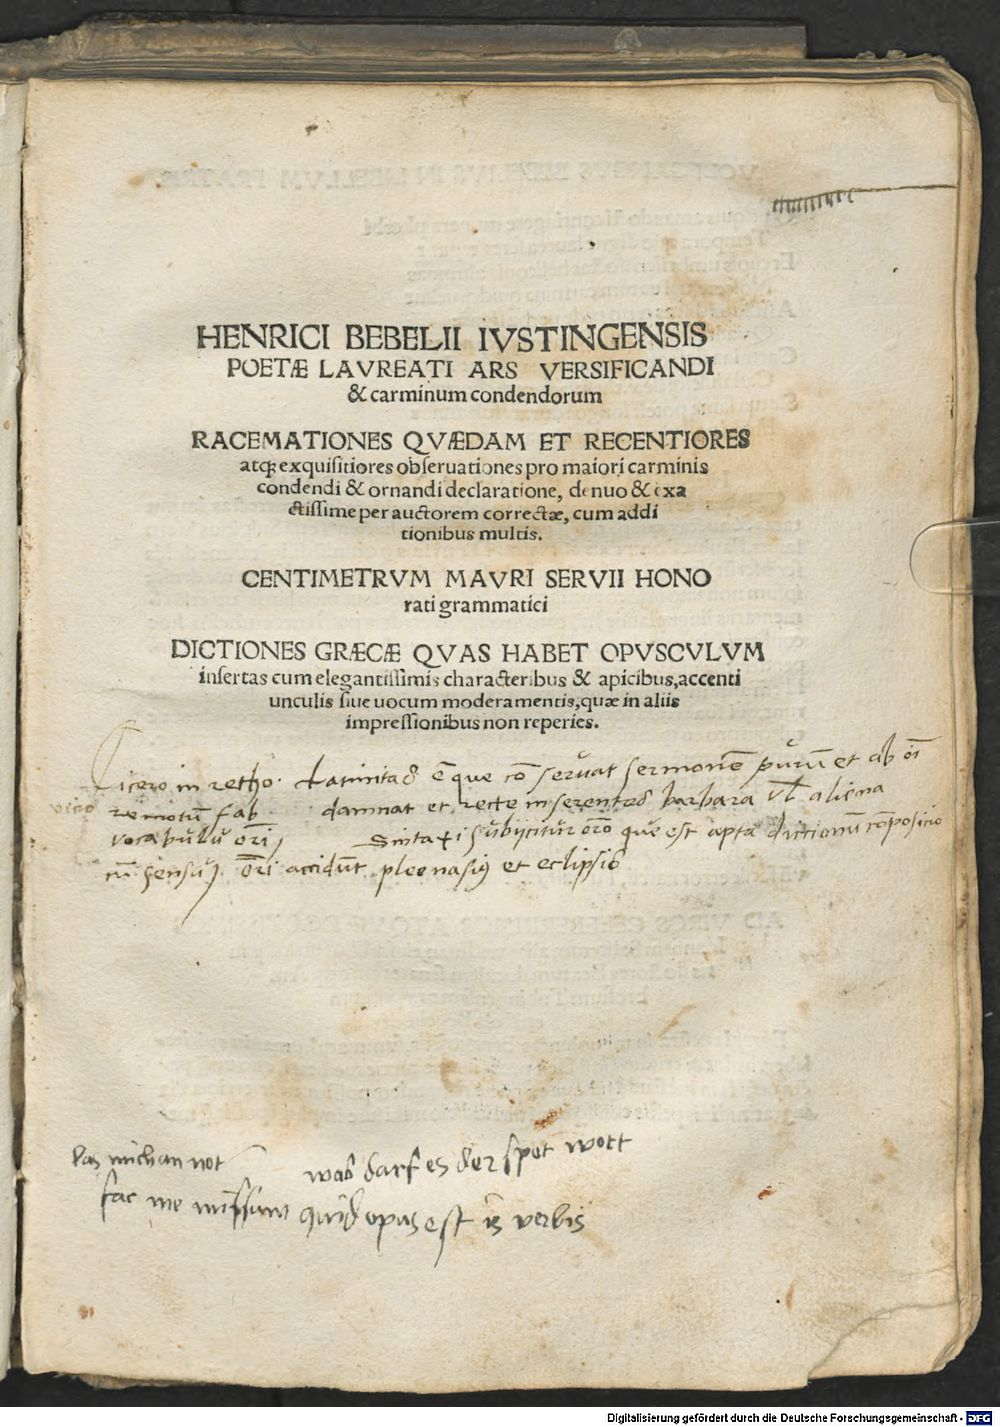 HENRICI BEBELII IVSTINGENSIS
POETÆ LAVREATI ARS VERSIFICANDI
& carminum condendorum
RACEMATIONES QVÆDAM ET RECENTIORES
atq; exquisitiores obseruationes pro maiori carminis
condendi & ornandi declaratione, denuo & exa
ctissime per auctorem correctæ, cum addi
tionibus multis.
CENTIMETRVM MAVRI SERVII HONO
rati grammatici
DICTIONES GRÆCÆ QVAS HABET OPVSCVLVM
insertas cum elegantissimis characteribus & apicibus, accenti
unculis siue uocum moderamentis, quæ in aliis
impressionibus non reperies.
Cicero in retho. Latinitas ē que sermonē purū et ab oī
vicio remotū damnat et recte inserentes barbara vl aliena
vocabulū subijcitur que est apta dictionū cōposicio
accidūt pleonasmus et eclipsis
las mich an not was darf es der spet wort
fac me missum quid opus est is verbis
Digitalisierung gefördert durch die Deutsche Forschungsgemeinschaft - DFG